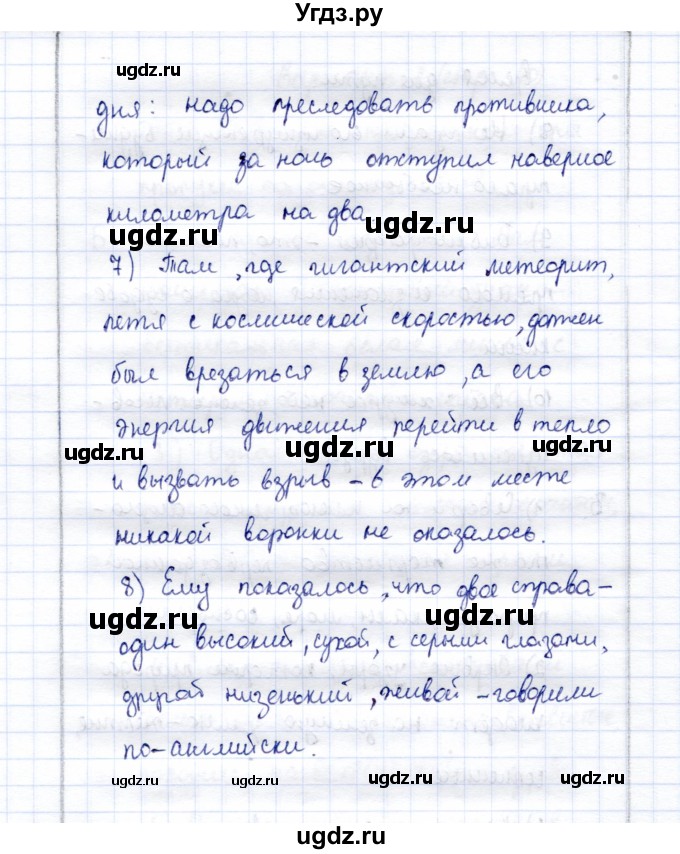 Угдз.ру
ugdz.ru ugdz.ru
дня: надо преследовать противника,
который за ночь отступил наверное
километра на два
ugdz.ru ugdz.ru
7) Там, где гигантский метеорит,
летя с космической скоростью, должен
был врезаться в землю, а его
энергия движения перейти в тепло
ugdz.ru ugdz.ru ugdz.ru
и вызвать взрыв – в этом месте
никакой воронки не оказалось.
8) Ему показалось, что двое справа –
ugdz.ru ugdz.ru
один высокий, сухой, с серыми глазами,
другой низенький, живой – говорили
по-английски.
ugdz.ru ugdz.ru ugdz.ru ugdz.ru
ugdz.ru